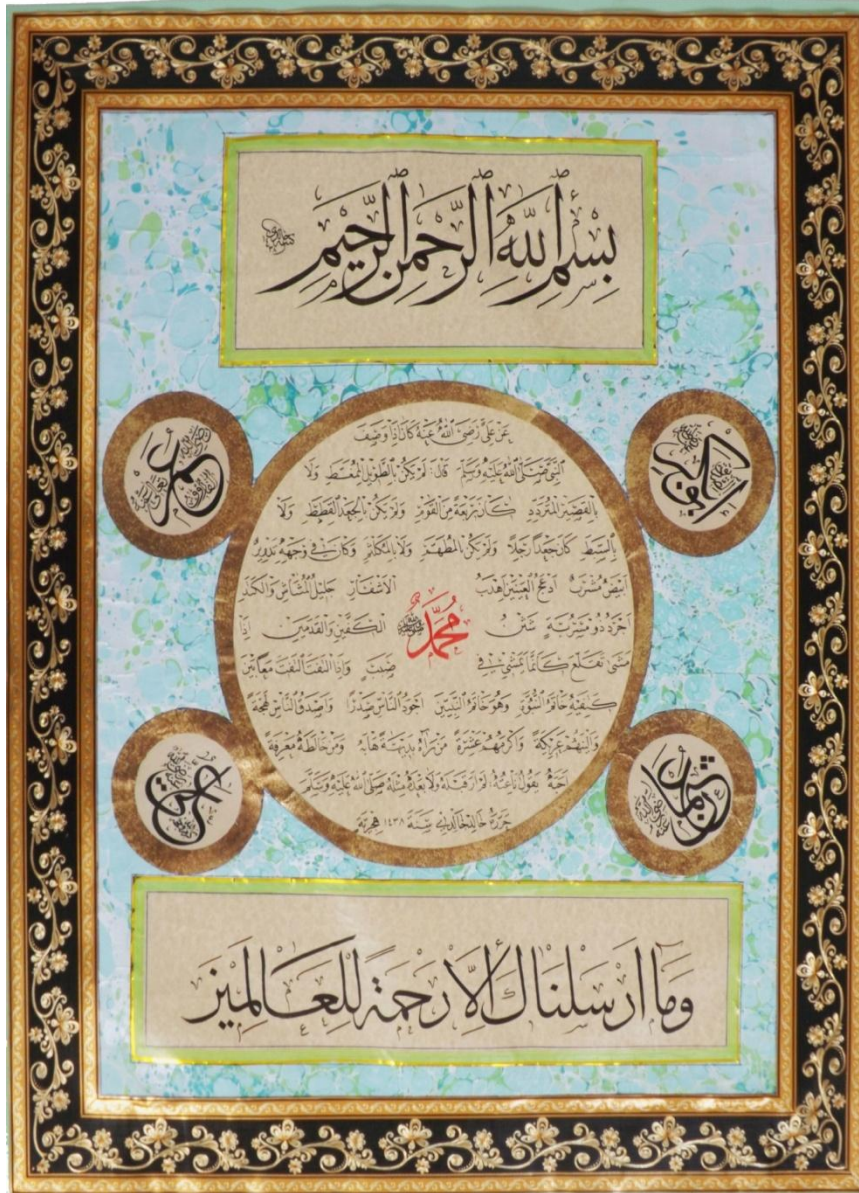 بِسْمِ اللهِ الرَّحْمٰنِ الرَّحِيمِ
عَنْ عَلِيٍّ رَضِيَ اللهُ عَنْهُ كَانَ إِذَا وَصَفَ
النَّبِيَّ صَلَّى اللهُ عَلَيْهِ وَسَلَّمَ قَالَ: لَمْ يَكُنْ بِالطَّوِيلِ الْمُمَّغِطِ وَلَا
بِالْقَصِيرِ الْمُتَرَدِّدِ كَانَ رَبْعَةً مِنَ الْقَوْمِ وَلَمْ يَكُنْ بِالْجَعْدِ الْقَطَطِ وَلَا
بِالسَّبِطِ كَانَ جَعْدًا رَجِلًا وَلَمْ يَكُنْ بِالْمُطَهَّمِ وَلَا بِالْمُكَلْثَمِ وَكَانَ فِي وَجْهِهِ تَدْوِيرٌ
أَبْيَضُ مُشْرَبٌ أَدْعَجُ الْعَيْنَيْنِ أَهْدَبُ الْأَشْفَارِ جَلِيلُ الْمُشَاشِ وَالْكَتَدِ
أَجْرَدُ ذُو مَسْرُبَةٍ شَثْنُ الْكَفَّيْنِ وَالْقَدَمَيْنِ إِذَا
مُحَمَّد
مَشَى تَقَلَّعَ كَأَنَّمَا يَمْشِي فِي صَبَبٍ وَإِذَا الْتَفَتَ الْتَفَتَ مَعًا بَيْنَ
كَتِفَيْهِ خَاتَمُ النُّبُوَّةِ وَهُوَ خَاتَمُ النَّبِيِّينَ أَجْوَدُ النَّاسِ صَدْرًا وَأَصْدَقُ النَّاسِ لَهْجَةً
وَأَلْيَنُهُمْ عَرِيكَةً وَأَكْرَمُهُمْ عِشْرَةً مَنْ رَآهُ بَدِيهَةً هَابَهُ وَمَنْ خَالَطَهُ مَعْرِفَةً
أَحَبَّهُ يَقُولُ نَاعِتُهُ لَمْ أَرَ قَبْلَهُ وَلَا بَعْدَهُ مِثْلَهُ صَلَّى اللهُ عَلَيْهِ وَسَلَّمَ
حَرَّرَهُ خَالِد الخَالِدِي سَنَةَ ١٤٣٨ هِجْرِيَّة
أبو بكر
عمر
عثمان
علي
وَمَا أَرْسَلْنَاكَ إِلَّا رَحْمَةً لِلْعَالَمِينَ